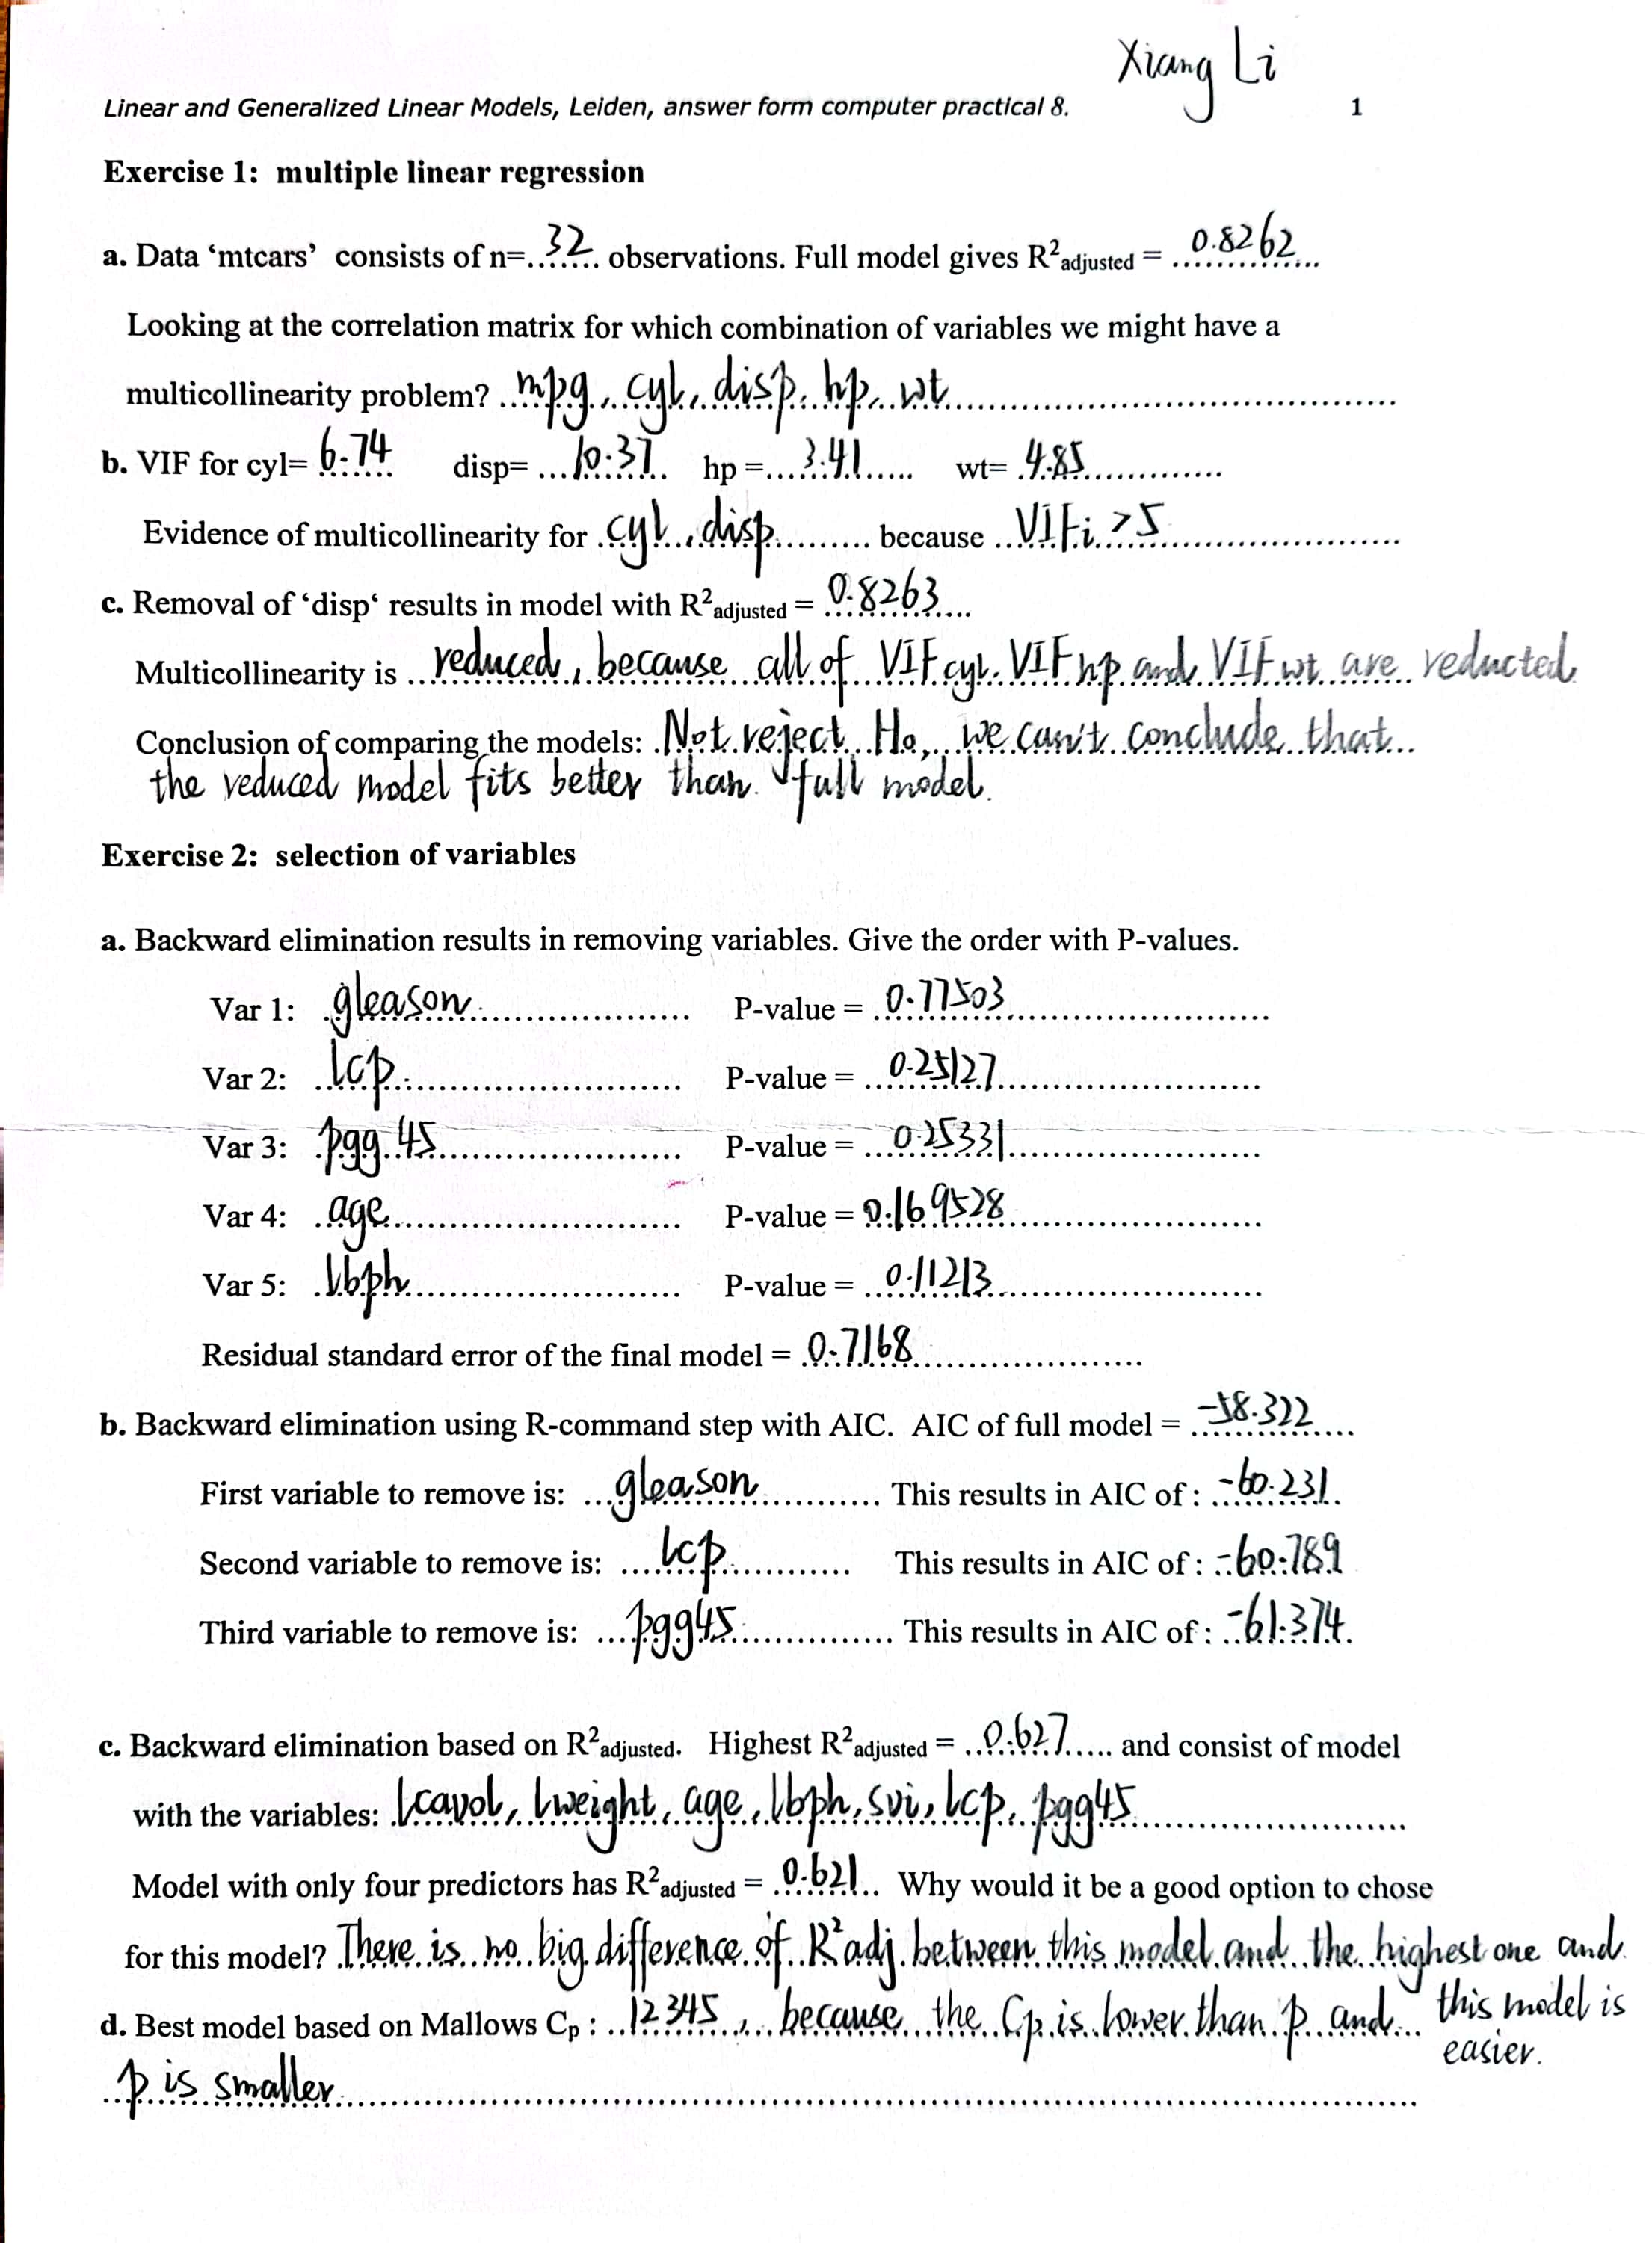 Xiang Li
Linear and Generalized Linear Models, Leiden, answer form computer practical 8. 1
Exercise 1: multiple linear regression
a. Data ‘mtcars’ consists of n= 32 observations. Full model gives R²adjusted = 0.8262
Looking at the correlation matrix for which combination of variables we might have a
multicollinearity problem? mpg, cyl, disp, hp, wt
b. VIF for cyl= 6.74 disp= 10.37 hp = 3.41 wt= 4.85
Evidence of multicollinearity for cyl, disp because VIFi >5
c. Removal of ‘disp‘ results in model with R²adjusted = 0.8263
Multicollinearity is reduced, because all of VIF cyl, VIF hp and VIF wt are reducted
Conclusion of comparing the models: Not reject Ho, we can't conclude that
the reduced model fits better than full model.
Exercise 2: selection of variables
a. Backward elimination results in removing variables. Give the order with P-values.
Var 1: gleason P-value = 0.77503
Var 2: lcp P-value = 0.25127
Var 3: pgg 45 P-value = 0.25331
Var 4: age P-value = 0.169528
Var 5: lbph P-value = 0.11213
Residual standard error of the final model = 0.7168
b. Backward elimination using R-command step with AIC. AIC of full model = -58.322
First variable to remove is: gleason This results in AIC of : -60.231
Second variable to remove is: lcp This results in AIC of : -60.789
Third variable to remove is: pgg45 This results in AIC of : -61.374
c. Backward elimination based on R²adjusted. Highest R²adjusted = 0.627 and consist of model
with the variables: lcavol, lweight, age, lbph, svi, lcp, pgg45
Model with only four predictors has R²adjusted = 0.621 Why would it be a good option to chose
for this model? There is no big difference of R²adj between this model and the highest one and
this model is
easier.
d. Best model based on Mallows Cp : 12345, because the Cp is lower than p and
p is smaller